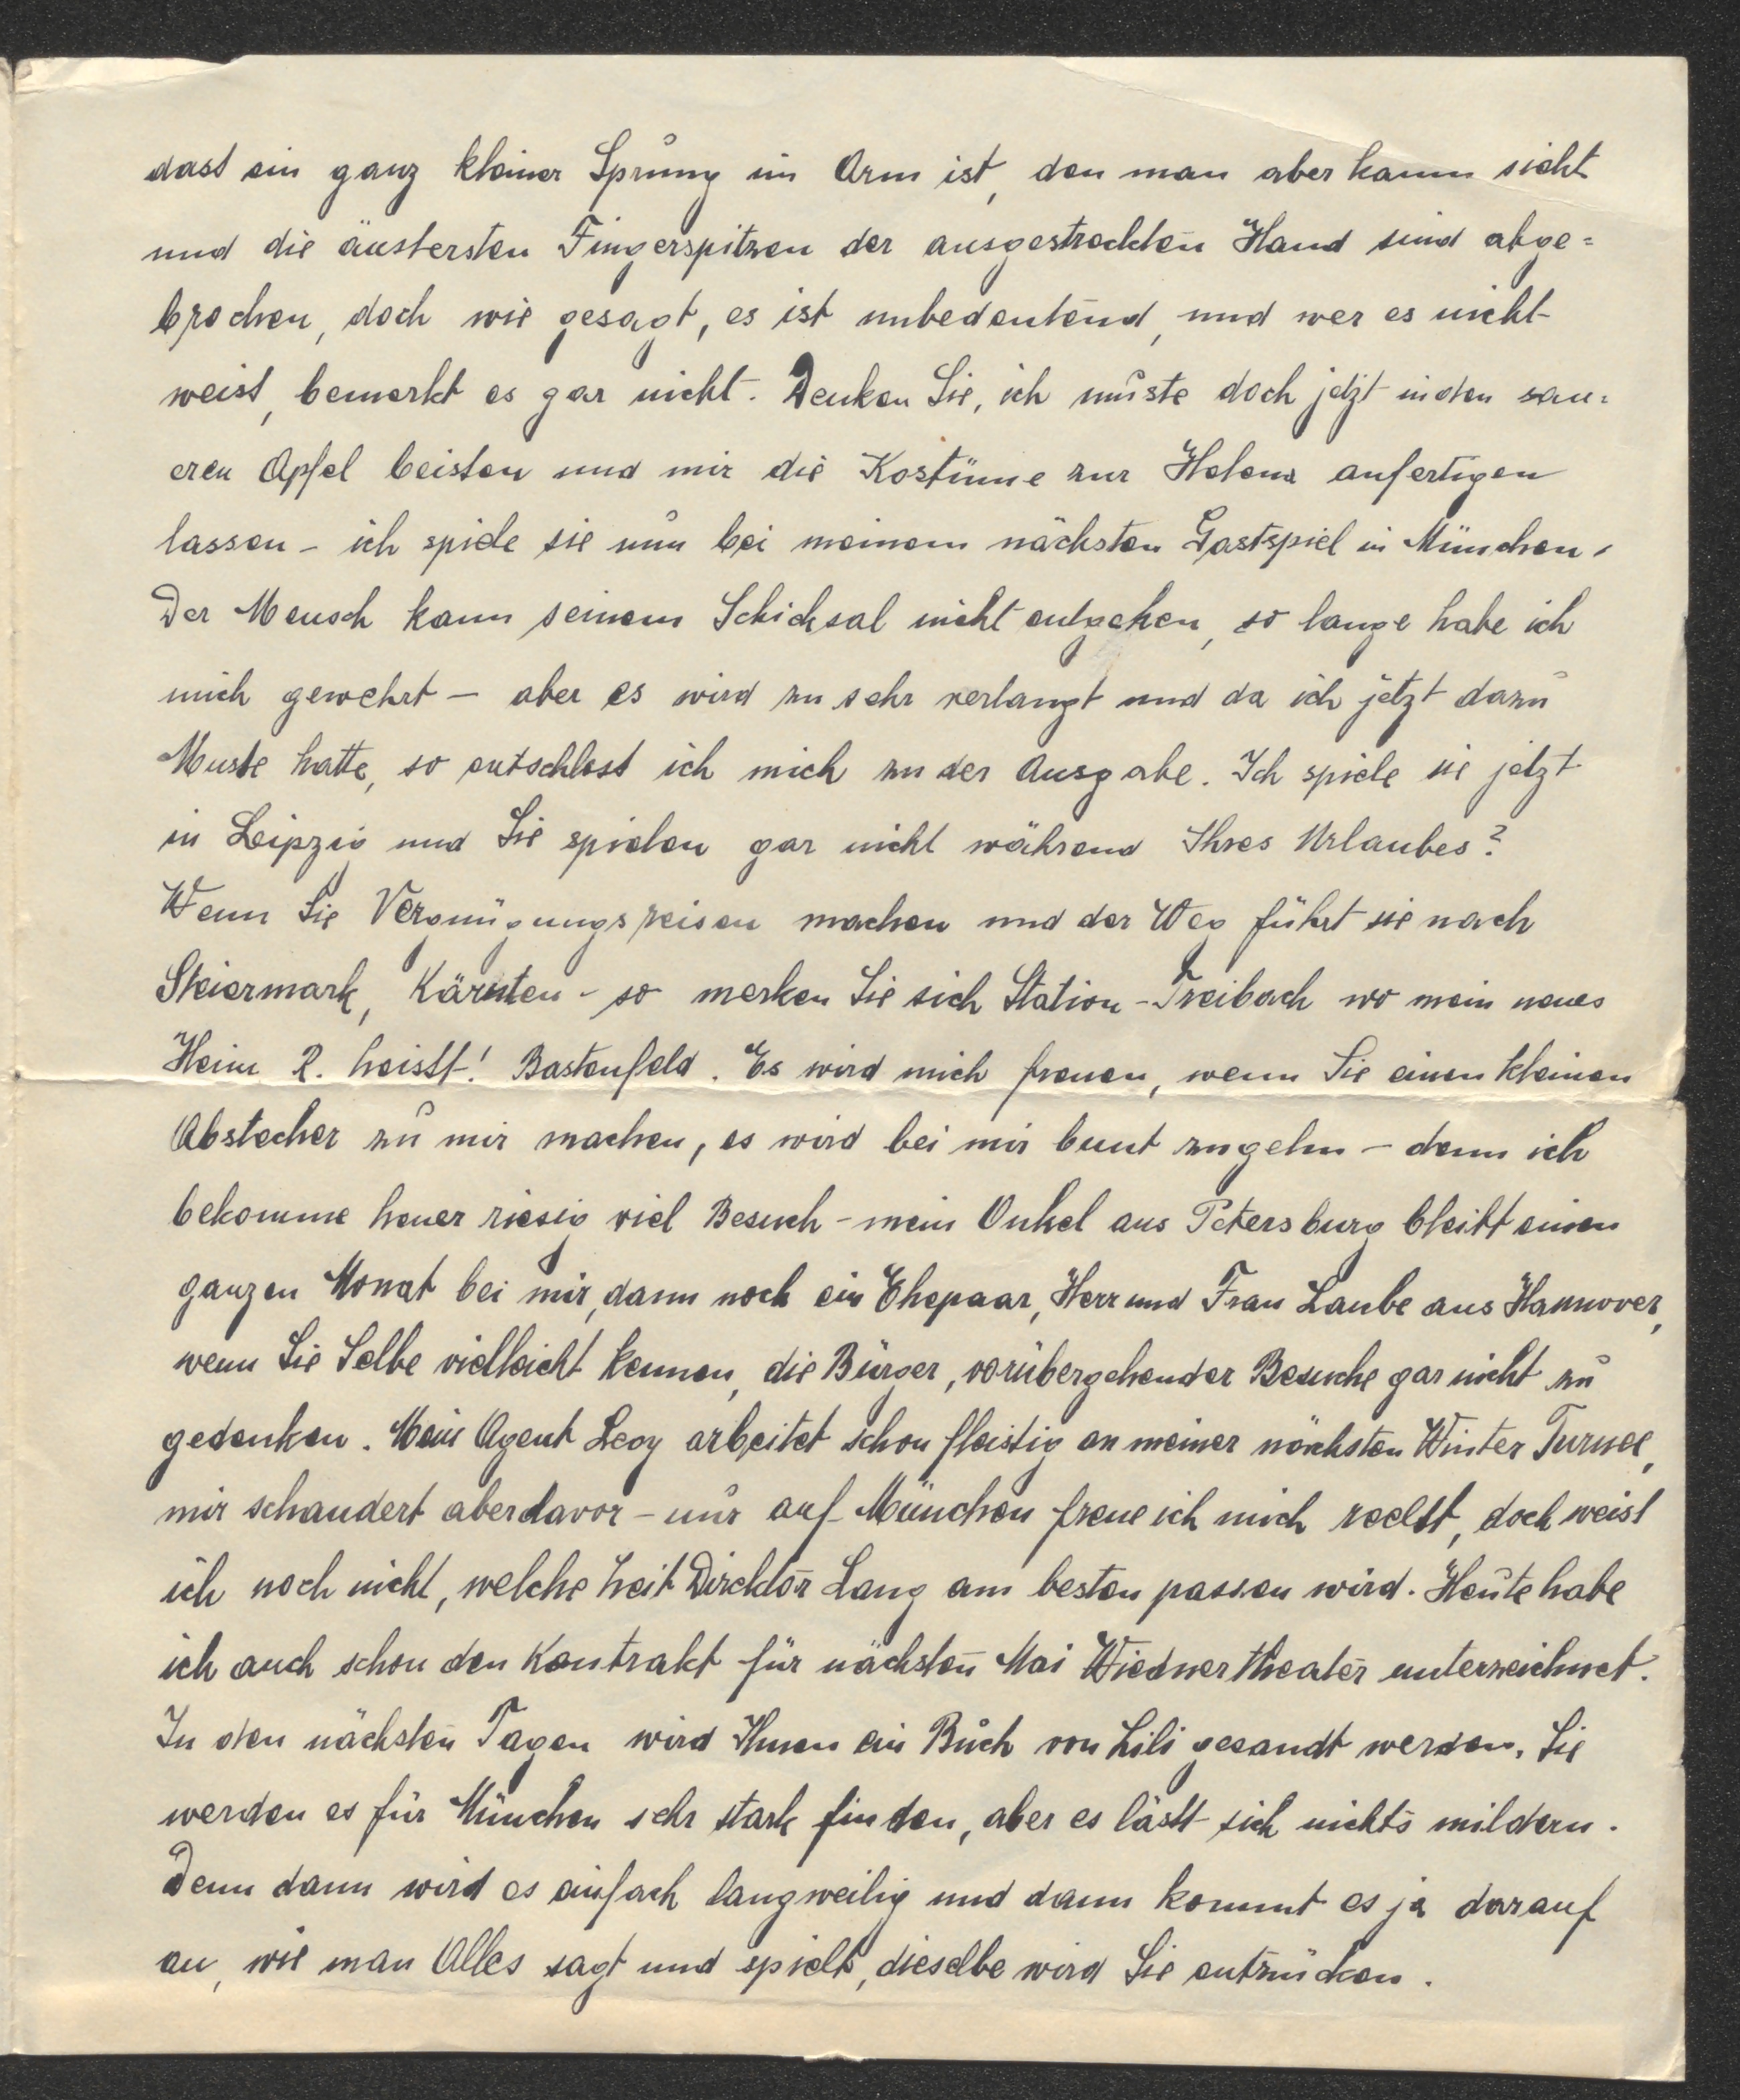 dass ein ganz kleiner Sprung im Arm ist, den man aber kaum sieht
und die äussersten Fingerspitzen der ausgestreckten Hand sind abge=
brochen, doch wie gesagt, es ist unbedeutend, und wer es nicht
weiss, bemerkt es gar nicht. Denken Sie, ich musste doch jetzt in den sau=
eren Apfel beissen und mir die Kostüme zur Helena anfertigen
lassen – ich spiele sie nun bei meinem nächsten Gastspiel in München.
Der Mensch kann seinem Schicksal nicht entgehen, so lange habe ich
mich gewehrt – aber es wird zu sehr verlangt und da ich jetzt dazu
Musse hatte, so entschloss ich mich zu der Ausgabe. Ich spiele sie jetzt
in Leipzig und Sie spielen gar nicht während Ihres Urlaubes?
Wenn Sie Vergnügungsreisen machen und der Weg führt sie nach
Steiermark, Kärnten – so merken Sie sich Station – Treibach wo mein neues
Heim R. heisst! Rastenfeld. Es wird mich freuen, wenn Sie einen kleinen
Abstecher zu mir machen, es wird bei mir bunt zugehn – denn ich
bekomme heuer riesig viel Besuch – mein Onkel aus Petersburg bleibt einen
ganzen Monat bei mir, dann noch ein Ehepaar, Herr und Frau Laube aus Hannover,
wenn Sie Selbe vielleicht kennen, die Bürger, vorübergehender Besuche gar nicht zu
gedenken. Mein Agent Levy arbeitet schon fleissig an meiner nächsten Winter Turnee,
mir schaudert aber davor – nur auf München freue ich mich recht, doch weiss
ich noch nicht, welche Zeit Direktor Lang am besten passen wird. Heute habe
ich auch schon den Kontrakt für nächsten Mai Wiednertheater unterzeichnet.
In den nächsten Tagen wird Ihnen ein Buch von Lili gesandt werden. Sie
werden es für München sehr stark finden, aber es lässt sich nichts mildern.
Denn dann wird es einfach langweilig und dann kommt es ja darauf
an, wie man Alles sagt und spielt, dieselbe wird Sie entzücken.